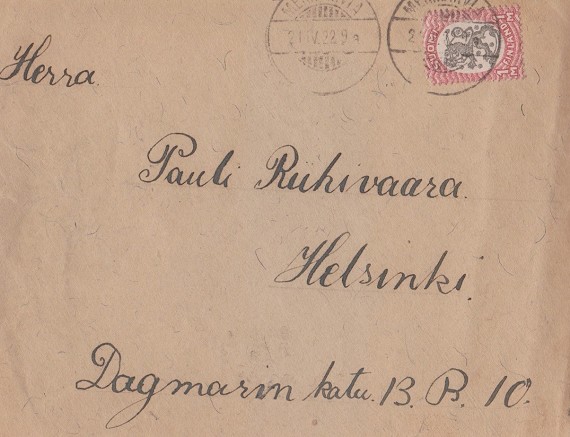 21.IV.22.9
Herra
Pauli Ruhivaara.
Helsinki.
Dagmarin katu. 13. B. 10.